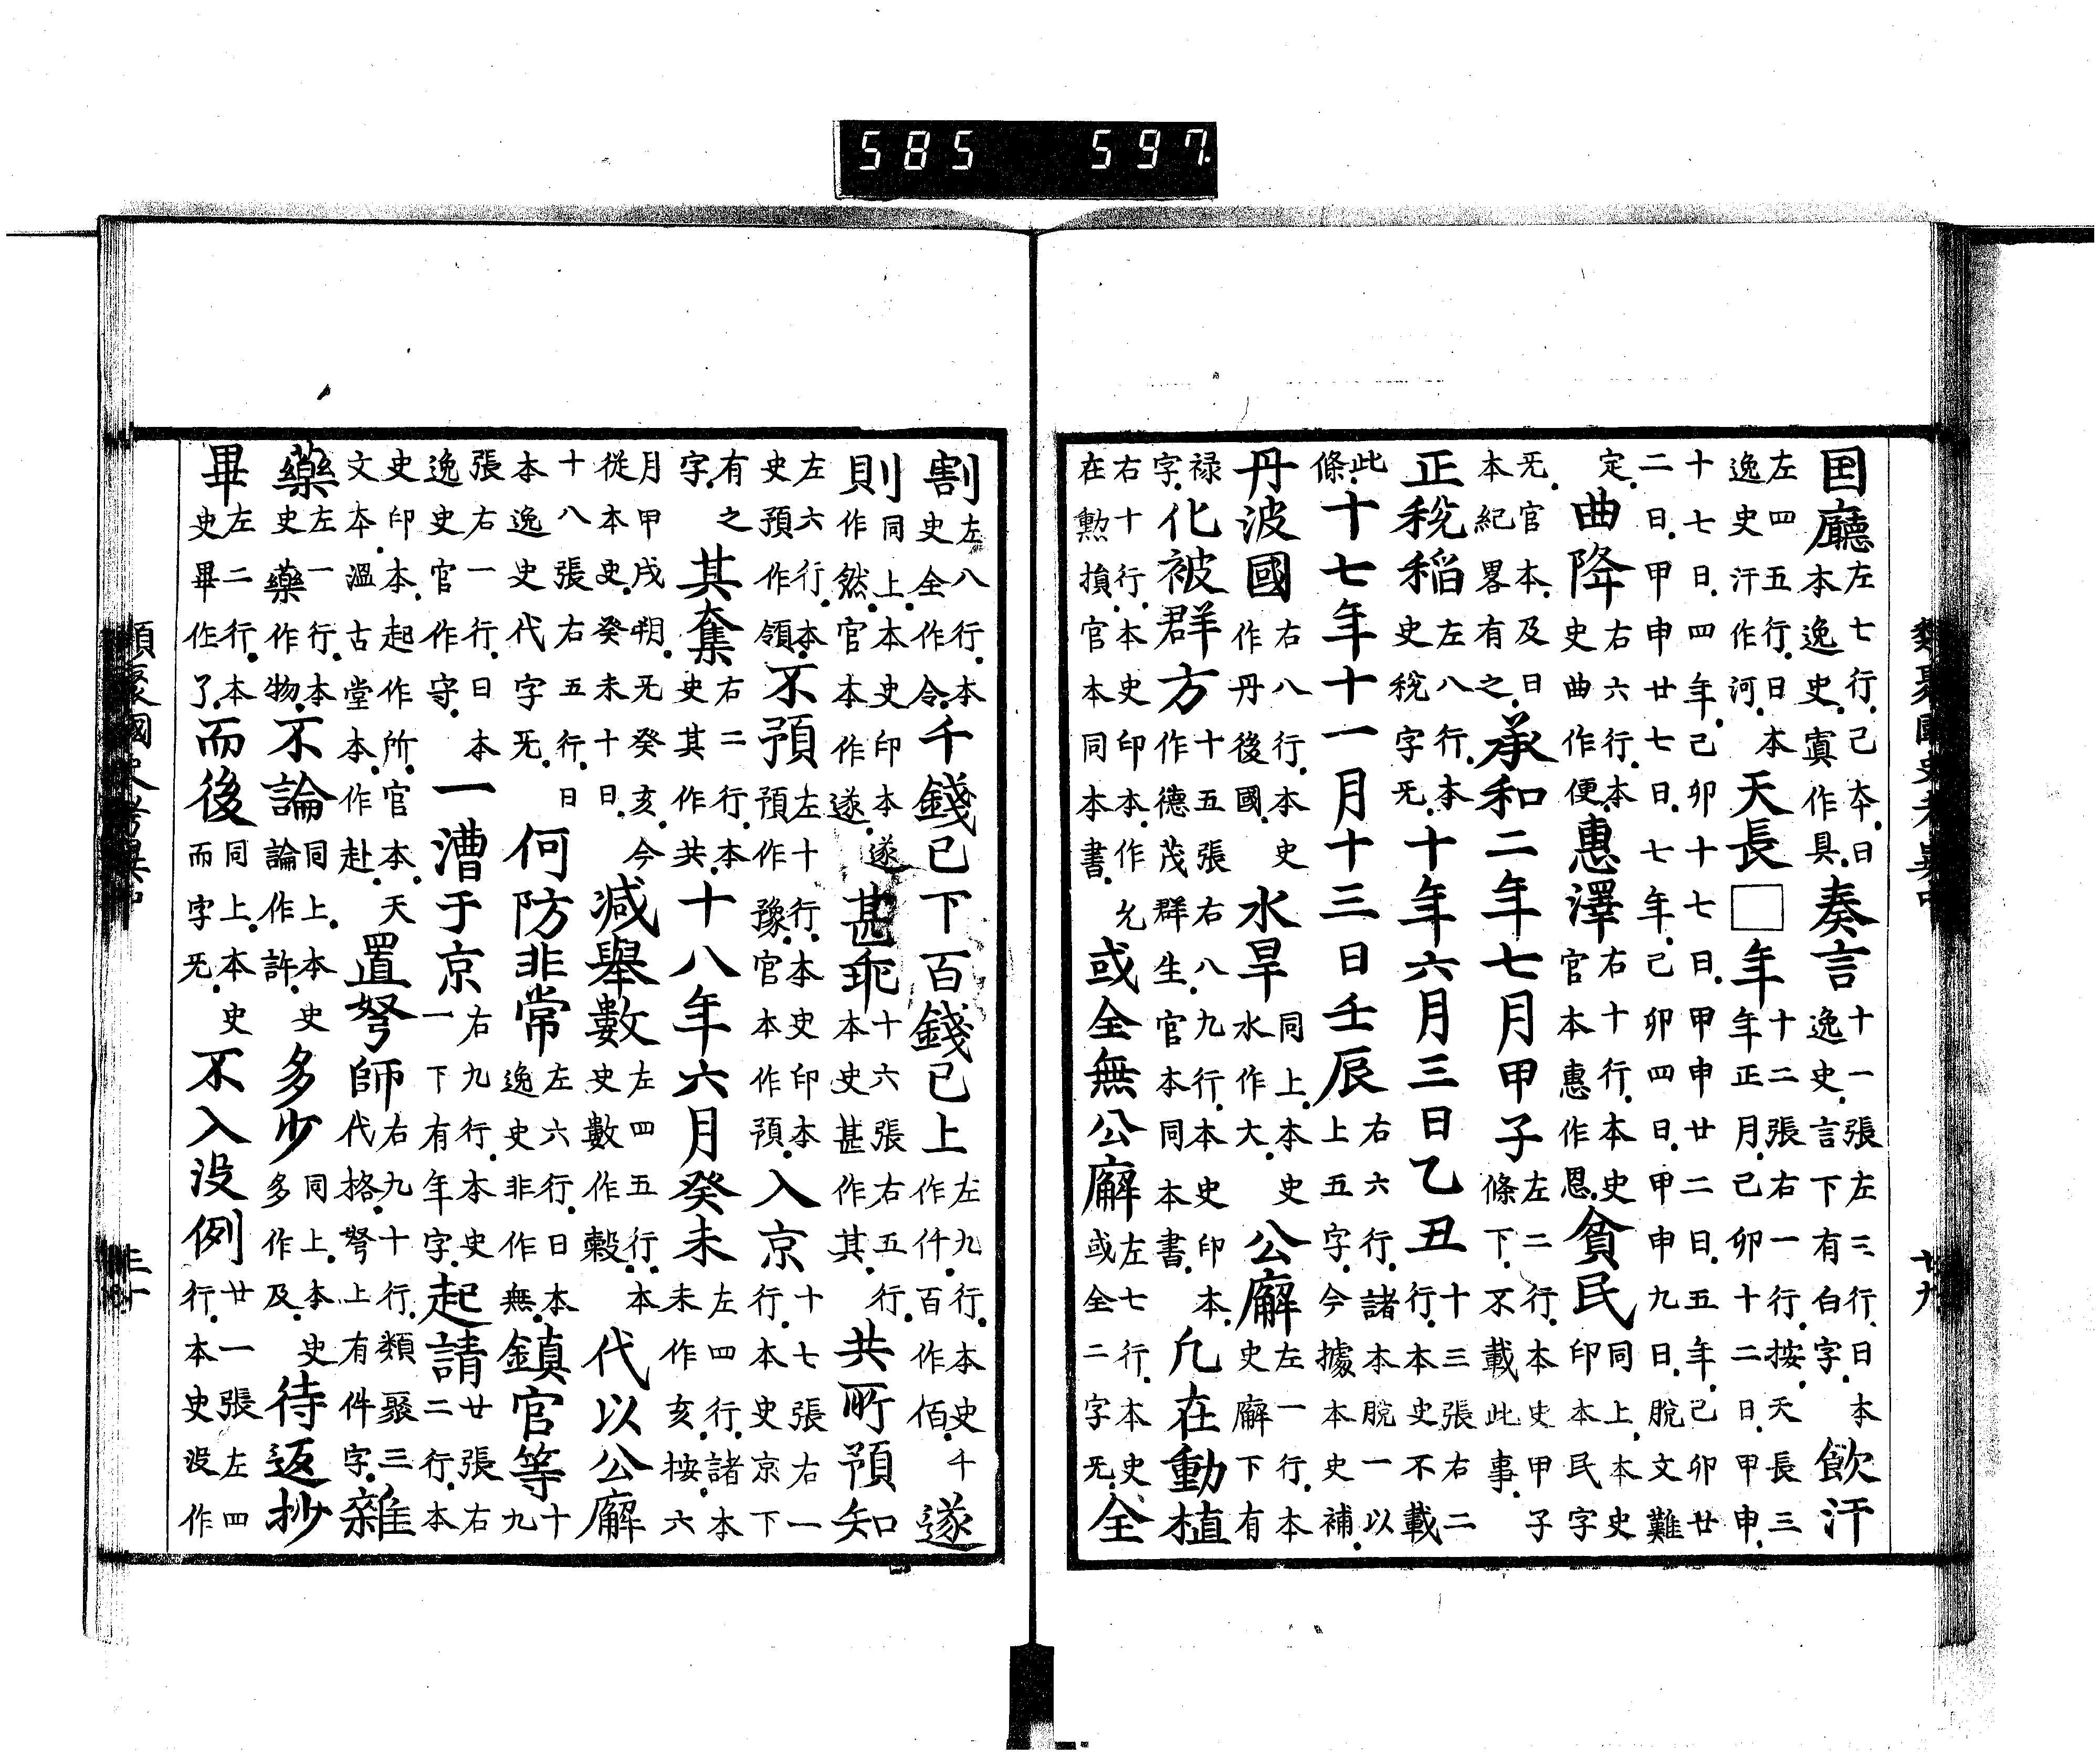 585 597.
類聚國史考異中 廿九
国廳左七行。己本。日本逸史。寘作具。奏言十一張左三行。日本逸史。言下有白字。飲汗
左四五行。日本逸史汗作河。天長□年十二張右一行。按。天長三年正月。己卯十二日。甲申。
十七日。四年。己卯十七日。甲申廿二日。五年。己卯廿二日。甲申廿七日。七年。己卯四日。甲申九日。脱文難
定。曲降右六行。本史曲作便。惠澤右十行。本史官本惠作恩。貧民同上。本史印本民字
无。官本。及日本紀畧有之。承和二年七月甲子左二行。本史甲子條下。不載此事。
正稅稲左八行。本史稅字无。十年六月三日乙丑十三張右二行。本史不載
此條。十七年十一月十三日壬辰右六行。諸本脱一以上五字。今據本史補。
丹波國右八行。本史作丹後國。水旱同上。本史水作大。公廨左一行。本史廨下有
禄字。化被群方十五張右八九行。本史印本。作德茂群生。官本同本書。凢在動植
右十行。本史印本。作允在勲損。官本同本書。或全無公廨左七行。本史。或全二字无。全
割左八行。本史全作令。千錢已下百錢已上左九行。本史。千作仟。百作佰。遂
則同上。本史印本遂作然。官本作遂。甚乖十六張右五行。本史甚作其。共所預知
左六行。本史預作領。不預左十行。本史印本預作豫。官本作預。入京十七張右一行。本史京下
有之字。其奪右二行。本史其作共。十八年六月癸未左四行。諸本未作亥。按。六
月甲戌朔。无癸亥。今從本史。癸未十日。減舉數左四五行。本史數作穀。代以公廨
十八張右五行。日本逸史代字无。何防非常左六行。日本逸史非作無。鎮官等十九
張右一行。日本逸史官作守。一漕于京右九行。本史一下有年字。起請廿張右二行。本
史印本。起作所。官本。天文本。溫古堂本。作赴。置弩師右九十行。類聚三代格。弩上有件字。雜
藥左一行。本史藥作物。不論同上。本史論作許。多少同上。本史多作及。待返抄
畢左二行。本史畢作了。而後同上。本史而字无。不入没例廿一張左四行。本史没作
類聚國史考異中 三十